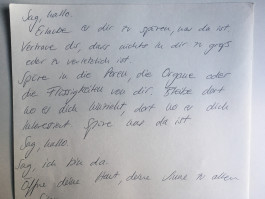 Sag, hallo.
Erlaube es dir zu spüren, was da ist.
Vertraue dir, dass nichts in dir zu groß
oder zu verletzlich ist.
Spüre in die Poren, die Organe oder
die Flüssigkeiten von dir. Bleibe dort
wo es dich hinzieht, dort wo es dich
interessiert. Spüre was da ist.
Sag, hallo.
Sag, ich bin da.
Öffne deine Haut, deine zu allem